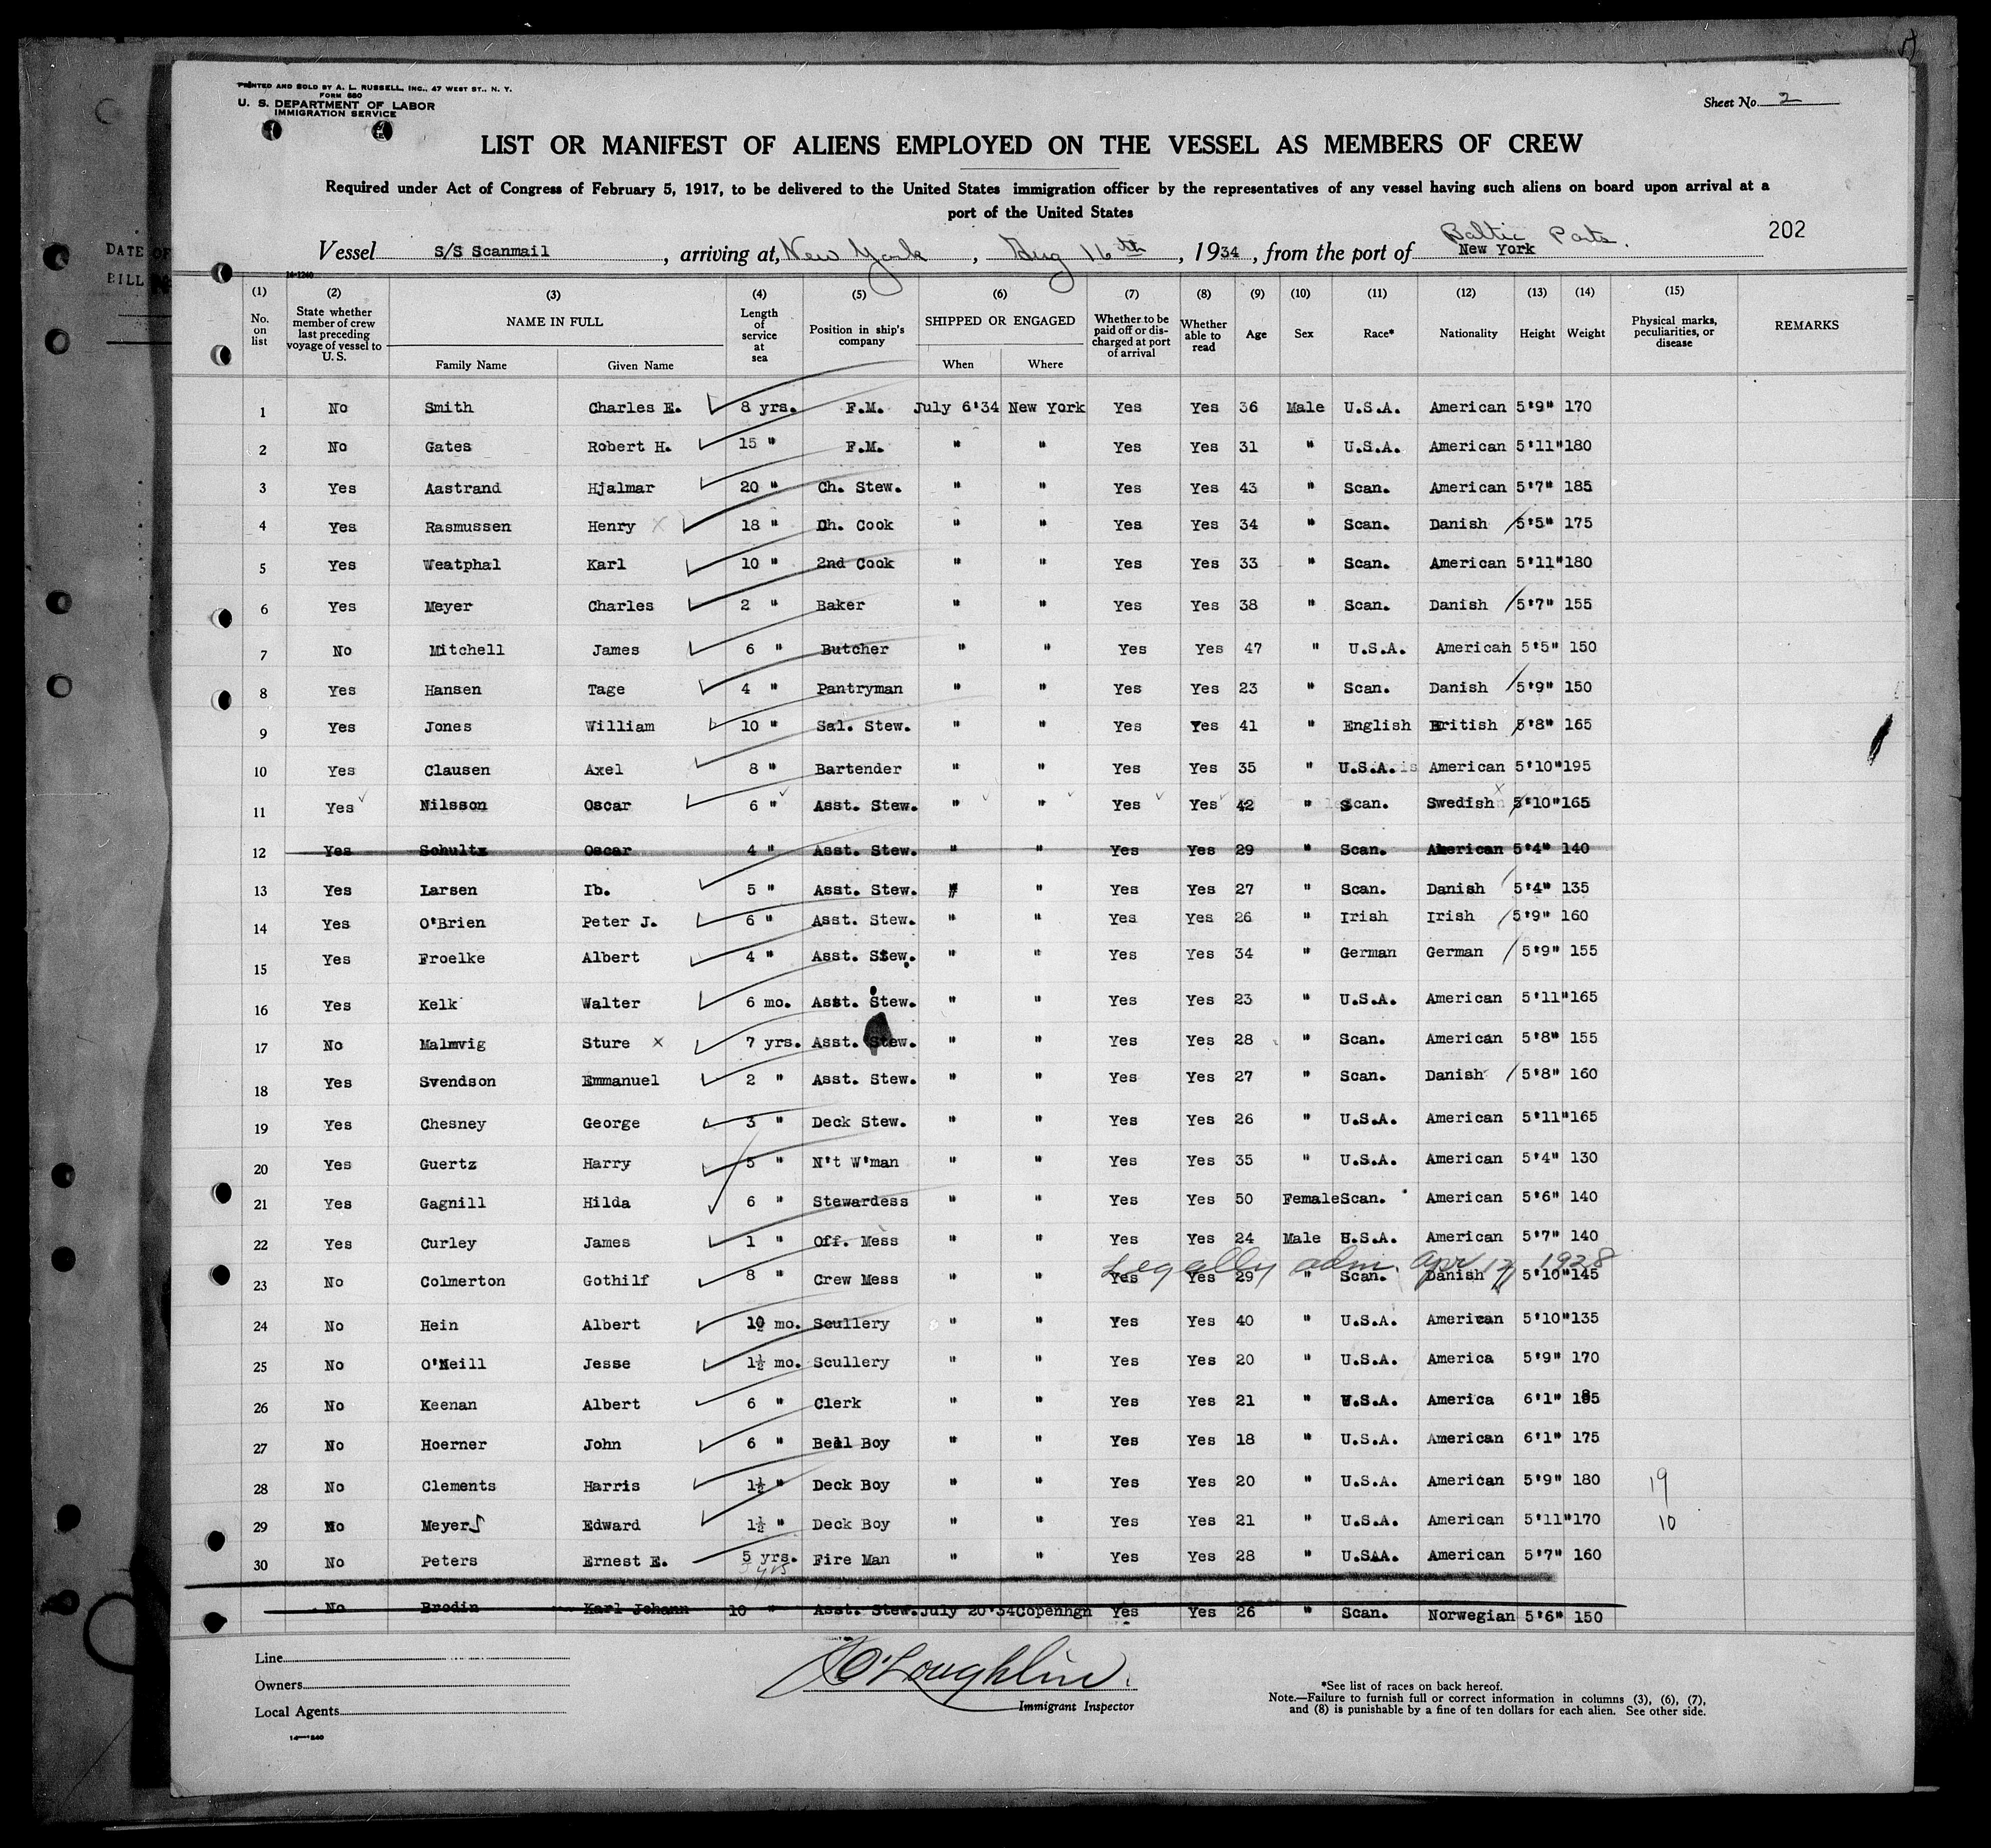 PRINTED AND SOLD BY A. L. RUSSELL, INC., 47 WEST ST., N. Y.
FORM 680
U. S. DEPARTMENT OF LABOR
IMMIGRATION SERVICE
Sheet No. 2
LIST OR MANIFEST OF ALIENS EMPLOYED ON THE VESSEL AS MEMBERS OF CREW
Required under Act of Congress of February 5, 1917, to be delivered to the United States immigration officer by the representatives of any vessel having such aliens on board upon arrival at a
port of the United States
202
DATE OF
BILL
Baltic Ports.
Vessel S/S Scanmail, arriving at, New York, Aug 16th, 1934, from the port of New York
14-1240
(1) (2) (3) (4) (5) (6) (7) (8) (9) (10) (11) (12) (13) (14) (15)
No. on list State whether member of crew last preceding voyage of vessel to U.S. NAME IN FULL Family Name Given Name Length of service at sea Position in ship's company SHIPPED OR ENGAGED When Where Whether to be paid off or discharged at port of arrival Whether able to read Age Sex Race* Nationality Height Weight Physical marks, peculiarities, or disease REMARKS
1 No Smith Charles E. 8 yrs. F.M. July 6'34 New York Yes Yes 36 Male U.S.A. American 5'9" 170
2 No Gates Robert H. 15 " F.M. " " Yes Yes 31 " U.S.A. American 5'11" 180
3 Yes Aastrand Hjalmar 20 " Ch. Stew. " " Yes Yes 43 " Scan. American 5'7" 185
4 Yes Rasmussen Henry x 18 " Ch. Cook " " Yes Yes 34 " Scan. Danish 5'5" 175
5 Yes Weatphal Karl 10 " 2nd Cook " " Yes Yes 33 " Scan. American 5'11" 180
6 Yes Meyer Charles 2 " Baker " " Yes Yes 38 " Scan. Danish 5'7" 155
7 No Mitchell James 6 " Butcher " " Yes Yes 47 " U.S.A. American 5'5" 150
8 Yes Hansen Tage 4 " Pantryman " " Yes Yes 23 " Scan. Danish 5'9" 150
9 Yes Jones William 10 " Sal. Stew. " " Yes Yes 41 " English British 5'8" 165
10 Yes Clausen Axel 8 " Bartender " " Yes Yes 35 " U.S.A. American 5'10" 195
11 Yes Nilsson Oscar 6 " Asst. Stew. " " Yes Yes 42 " Scan. Swedish 5'10" 165
12 Yes Schultz Oscar 4 " Asst. Stew. " " Yes Yes 29 " Scan. American 5'4" 140
13 Yes Larsen Ib. 5 " Asst. Stew. " " Yes Yes 27 " Scan. Danish 5'4" 135
14 Yes O'Brien Peter J. 6 " Asst. Stew. " " Yes Yes 26 " Irish Irish 5'9" 160
15 Yes Froelke Albert 4 " Asst. Stew. " " Yes Yes 34 " German German 5'9" 155
16 Yes Kelk Walter 6 mo. Asst. Stew. " " Yes Yes 23 " U.S.A. American 5'11" 165
17 No Malmvig Sture x 7 yrs. Asst. Stew. " " Yes Yes 28 " Scan. American 5'8" 155
18 Yes Svendson Emmanuel 2 " Asst. Stew. " " Yes Yes 27 " Scan. Danish 5'8" 160
19 Yes Chesney George 3 " Deck Stew. " " Yes Yes 26 " U.S.A. American 5'11" 165
20 Yes Guertz Harry 5 " N't W'man " " Yes Yes 35 " U.S.A. American 5'4" 130
21 Yes Gagnill Hilda 6 " Stewardess " " Yes Yes 50 Female Scan. American 5'6" 140
22 Yes Curley James 1 " Off. Mess " " Yes Yes 24 Male U.S.A. American 5'7" 140
Legally adm. Apr 17 1928
23 No Colmerton Gothilf 8 " Crew Mess " " Yes Yes 29 " Scan. Danish 5'10" 145
24 No Hein Albert 10 mo. Scullery " " Yes Yes 40 " U.S.A. American 5'10" 135
25 No O'Neill Jesse 1½ mo. Scullery " " Yes Yes 20 " U.S.A. America 5'9" 170
26 No Keenan Albert 6 " Clerk " " Yes Yes 21 " U.S.A. America 6'1" 185
27 No Hoerner John 6 " Bell Boy " " Yes Yes 18 " U.S.A. American 6'1" 175
28 No Clements Harris 1½ " Deck Boy " " Yes Yes 20 " U.S.A. American 5'9" 180 19
29 No Meyers Edward 1½ " Deck Boy " " Yes Yes 21 " U.S.A. American 5'11" 170 10
30 No Peters Ernest E. 5 yrs. Fire Man " " Yes Yes 28 " U.SAA. American 5'7" 160
5 yrs
No Brodin Karl Johann 10 " Asst. Stew. July 20'34 Copenhgn Yes Yes 26 " Scan. Norwegian 5'6" 150
Line
Owners
Local Agents
14-1240
O'Loughlin
Immigrant Inspector
*See list of races on back hereof.
Note.—Failure to furnish full or correct information in columns (3), (6), (7),
and (8) is punishable by a fine of ten dollars for each alien. See other side.